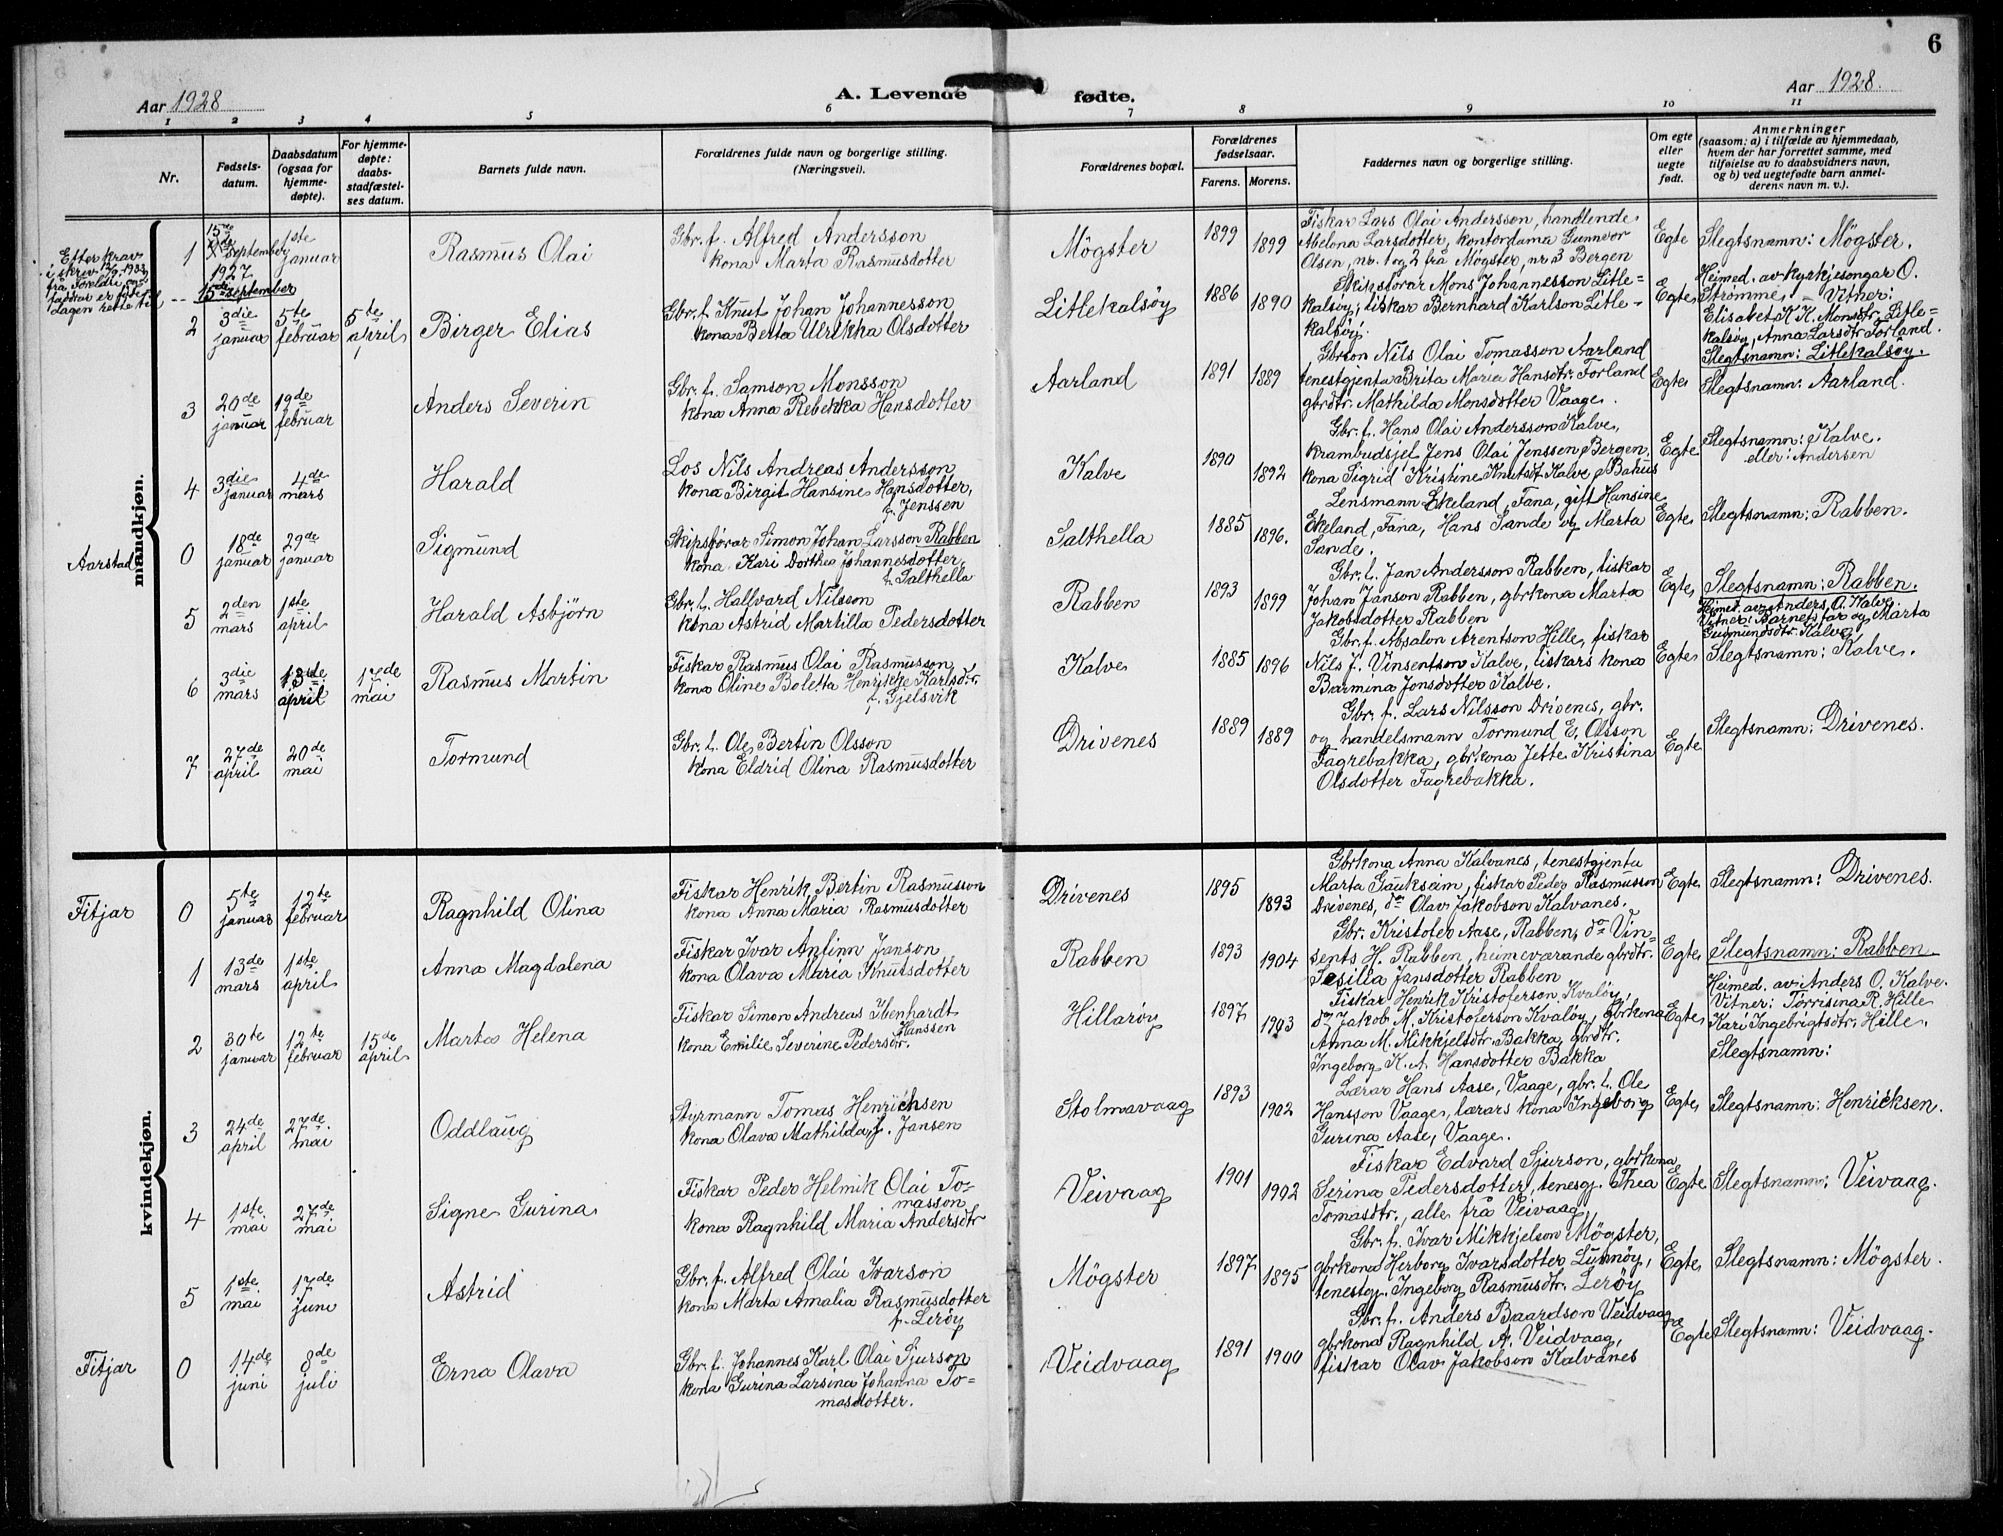 6
Aar 1928
A. Levende fødte.
Aar 1928.
1 2 3 4 5 6 7 8 9 10 11
Nr.
Fødsels-
datum.
Daabsdatum
(ogsaa for
hjemme-
døpte).
For hjemme-
døpte:
daabs-
stadfæstel-
ses datum.
Barnets fulde navn.
Forældrenes fulde navn og borgerlige stilling.
(Næringsvei).
Forældrenes bopæl.
Forældrenes
fødselsaar.
Farens. Morens.
Faddernes navn og borgerlige stilling.
Om egte
eller
uegte
født.
Anmerkninger
(saasom: a) i tilfælde av hjemmedaab,
hvem der har forrettet samme, med
tilføielse av to daabsvidners navn,
og b) ved uegtefødte barn anmel-
derens navn m. v.).
mandkjøn.
Etter krav
i skriv
frå foreldre og
faddrar er føde
dagen rette til
15de september
1
15de
September
1927
1ste
januar
Rasmus Olai
Gbr. f. Alfred Andersson
kona Marta Rasmusdotter
Møgster
1899
1899
Fiskar Lars Olai Andersson, handlende
Abelona Larsdotter, kontordama Gunnvor
Olsen, nr. 1 og 2 frå Møgster, nr. 3 Bergen
Egte
Slegtsnamn: Møgster.
2
3die
januar
5te
februar
5te
april
Birger Elias
Gbr. f. Knut Johan Johannesson
kona Berta Ulrikka Olsdotter
Litlekalsøy
1886
1890
Skipsførar Mons Johannesson Litle-
kalsøy, fiskar Bernhard Karlson Litle-
kalsøy,
Egte
Heimed. av kyrkjesongar O.
Strømme. - Vitner:
Elisabet K. K. Monsdtr. Litle-
kalsøy, Anna Larsdtr Førland.
Slegtsnamn: Litlekalsøy.
3
20de
januar
19de
februar
Anders Severin
Gbr. f. Samson Monsson
kona Anna Rebekka Hansdotter
Aarland
1891
1889
Gbrson Nils Olai Tomasson Aarland
tenestgjenta Brita Maria Hansdtr. Førland
gbrdtr. Mathilda Monsdotter Vaage.
Egte
Slegtsnamn: Aarland.
4
3die
januar
4de
mars
Harald
Los Nils Andreas Andersson
kona Birgit Hansine Hansdotter,
f. Jenssen
Kalve
1890
1892
Gbr. f. Hans Olai Andersson Kalve,
krambudsjef Jens Olai Jenssen, Bergen,
kona Sigrid Kristine Knutsdt Kalve, Bahus
Egte
Slegtsnamn: Kalve.
eller: Andersen
Aarstad
0
18de
januar
29de
januar
Sigmund
Skipsførar Simon Johan Larsson Rabben
kona Kari Dorthea Johannesdotter,
f. Salthella
Salthella
1885
1896.
Lensmann Ekeland, Fana, gift Hansine
Ekeland, Fana, Hans Sande og Marta
Sande.
Egte
Slegtsnamn: Rabben.
5
2den
mars
1ste
april
Harald Asbjørn
Gbr. f. Hallvard Nilsson
kona Astrid Martilla Pedersdotter
Rabben
1893
1899
Gbr. f. Jan Andersson Rabben, fiskar
Johan Janson Rabben, gbrkona Marta
Jakobsdotter Rabben
Egte
Slegtsnamn: Rabben.
6
3die
mars
13de
april
17de
mai
Rasmus Martin
Fiskar Rasmus Olai Rasmusson
kona Oline Boletta Henrikke Karlsdtr.
f. Gjelsvik
Kalve
1885
1896
Gbr. f. Absalon Arentson Hille, fiskar
Nils J. Vinsentson Kalve, fiskars kona
Barmina Jonsdotter Kalve.
Egte
Heimed. av Anders O. Kalve
Vitner: Barnets far og Marta
Gudmundsdtr. Kalve
Slegtsnamn: Kalve.
7
27de
april
20de
mai
Tormund
Gbr. f. Ole Bertin Olsson
kona Eldrid Olina Rasmusdotter
Drivenes
1889
1889
Gbr. f. Lars Nilsson Drivenes, gbr.
og handelsmann Tormund E. Olsson
Fagrebakka, gbrkona Jette Kristina
Olsdotter Fagrebakka.
Egte
Slegtsnamn: Drivenes.
kvindekjøn.
Fitjar
0
5te
januar
12te
februar
Ragnhild Olina
Fiskar Henrik Bertin Rasmusson
kona Anna Maria Rasmusdotter
Drivenes
1895
1893
Gbrkona Anna Kalvanes, tenestgjenta
Marta Gaukseim, fiskar Peder Rasmusson
Drivenes, do Olav Jakobson Kalvanes.
Egte
Slegtsnamn: Drivenes.
1
13de
mars
1ste
april
Anna Magdalena
Fiskar Ivar Anfinn Janson
kona Olava Maria Knutsdotter
Rabben
1893
1904
Gbr. Kristofer Aase, Rabben, do Vin-
sents H. Rabben, heimeværande gbrdtr.
Sesilia Jansdotter Rabben
Egte
Slegtsnamn: Rabben.
2
30te
januar
12te
februar
15de
april
Marta Helena
Fiskar Simon Andreas Ibenhardt
Hanssen
kona Emilie Severine Pedersdtr.
Hillarøy
1897
1903
Fiskar Henrik Kristoferson Kvaløy,
do Jakob M. Kristoferson Kvaløy, gbrkona
Anna M. Mikkjelsdtr. Bakka, gbrdtr.
Ingeborg K. A. Hansdotter Bakka
Egte
Heimed. av Anders O. Kalve.
Vitner: Torrisina R. Hille
Kari Ingebrigtsdtr. Hille.
Slegtsnamn:
3
24de
april
27de
mai
Oddlaug
Styrmann Tomas Henrichsen
kona Olava Mathilda, f. Jansen
Stolmavaag
1893
1902
Lærar Hans Aase, Vaage, gbr. f. Ole
Hansson Vaage, lærars kona Ingeborg
Gurina Aase, Vaage.
Egte
Slegtsnamn: Henricksen.
4
1ste
mai
27de
mai
Signe Gurina
Fiskar Peder Helmik Olai To-
masson
kona Ragnhild Maria Andersdtr
Veivaag
1901
1902
Fiskar Edvard Sjurson, gbrkona
Serina Pedersdotter, tenesg. Thea
Tomasdtr., alle frå Veivaag,
Egte
Slegtsnamn: Veivaag.
5
1ste
mai
17de
juni
Astrid
Gbr. f. Alfred Olai Ivarson
kona Marta Amalia Rasmusdotter
f. Lerøy
Møgster
1897
1895
Gbr. f. Ivar Mikkjelson Møgster,
gbrkona Herborg Ivarsdotter Lunnøy,
tenestg. Ingeborg Rasmusdtr. Lerøy
Egte
Slegtsnamn: Møgster.
Fitjar
0
14de
juni
8de
juli
Erna Olava
Gbr. f. Johannes Karl Olai Sjurson
kona Gurina Larsina Johanna To-
masdotter.
Veidvaag
1891
1900
Gbr. f. Anders Baardson Veidvaag
gbrkona Ragnhild A. Veidvaag,
fiskar Olav Jakobson Kalvanes
Egte
Slegtsnamn: Veidvaag.